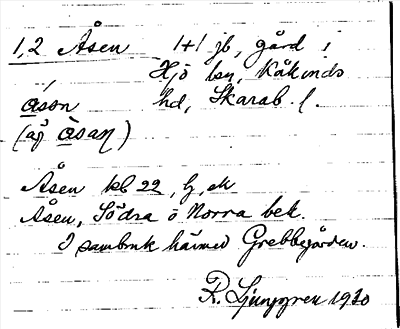 1,2 Åsen 1+1 jb, gård i
Hjo lsn, Kåkinds
åsen hd, Skarab. l.
(åf åsaɳ)
Åsen kb 22, h, ek
Åsen, Södra o Norra bek.
I sambruk härmed Grebbegården.
R. Ljunggren 1930